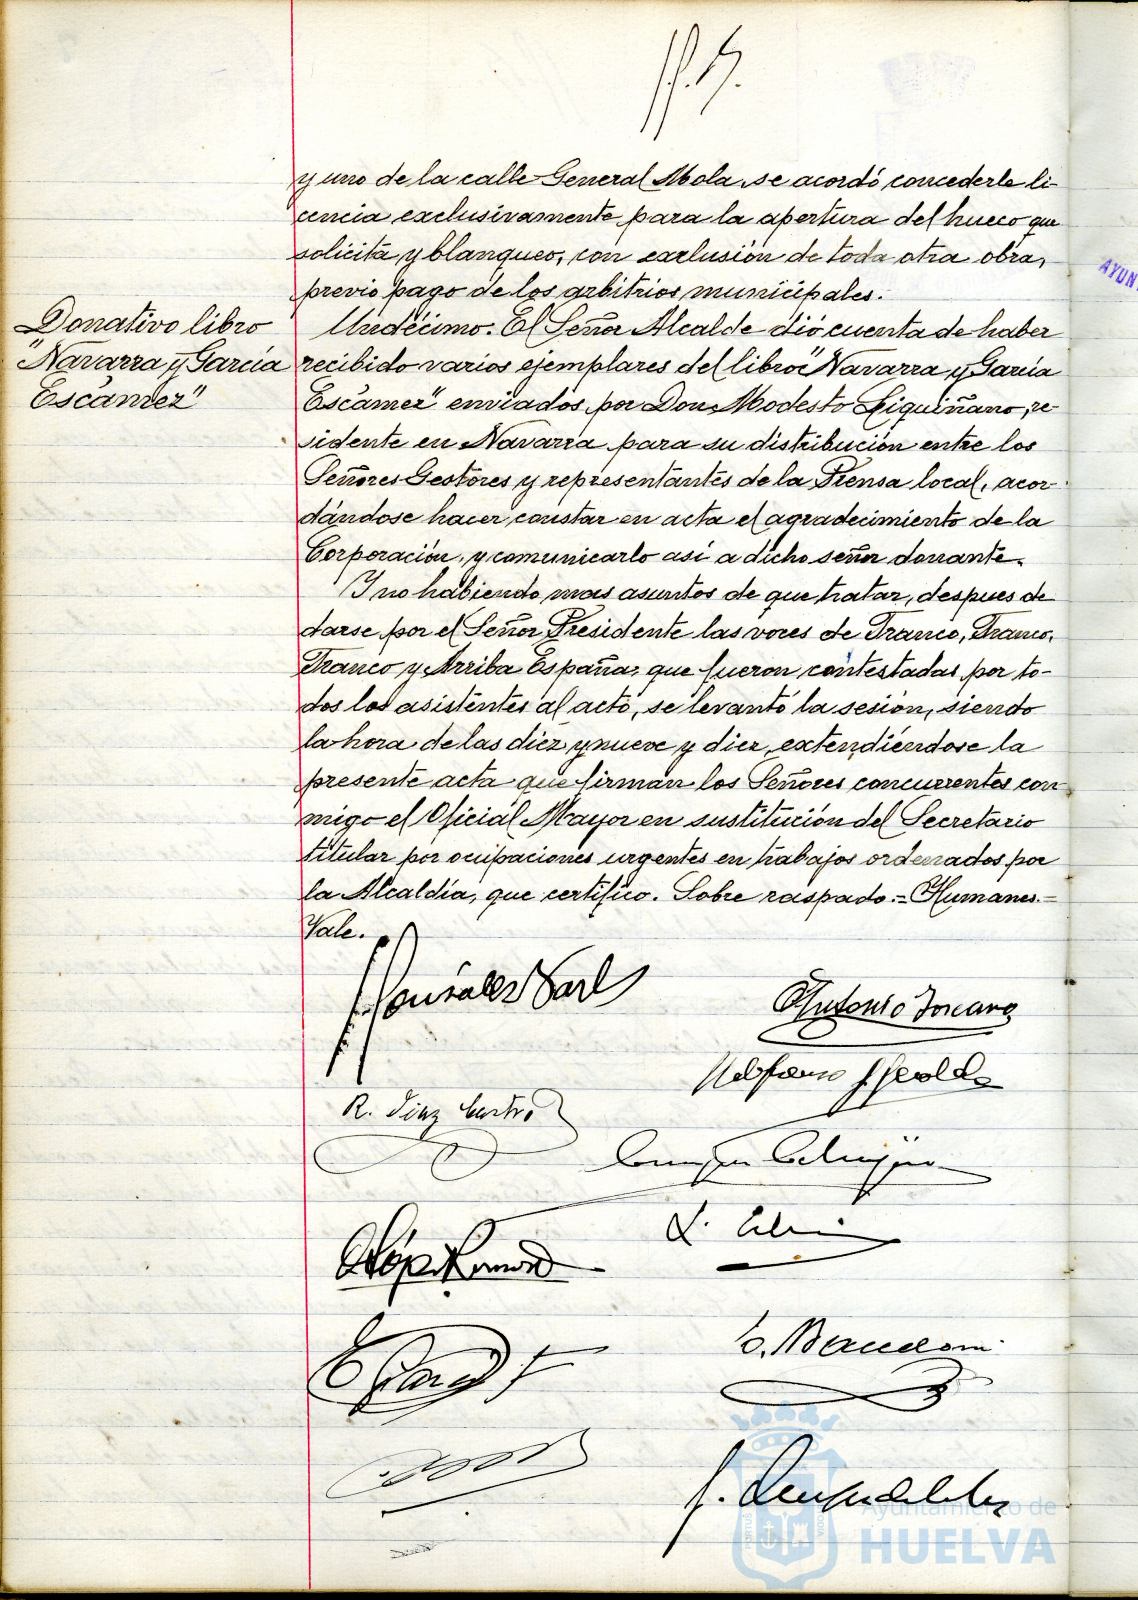 y uno de la calle General Mola, se acordó concederle li-
cencia exclusivamente para la apertura del hueco que
solicita y blanqueo, con exclusión de toda otra obra,
previo pago de los arbitrios municipales.
Donativo libro
"Navarra y García
Escámez"
Undécimo. El Señor Alcalde dió cuenta de haber
recibido varios ejemplares del libro "Navarra y García
Escámez" enviados por Don Modesto re-
sidente en Navarra para su distribución entre los
Señores Gestores y representantes de la Prensa local, acor-
dándose hacer constar en acta el agradecimiento de la
Corporación, y comunicarlo así a dicho señor donante.
Y no habiendo mas asuntos de que tratar, despues de
darse por el Señor Presidente las voces de Franco, Franco,
Franco y Arriba España, que fueron contestadas por to-
dos los asistentes al acto, se levantó la sesión, siendo
la hora de las diez y nueve y diez, extendiéndose la
presente acta que firman los Señores concurrentes con-
migo el Oficial Mayor en sustitución del Secretario
titular por ocupaciones urgentes en trabajos ordenados por
la Alcaldía, que certifico. Sobre raspado.=Humanes.=
Vale.
Antonio Toscano
R. Diaz Castro
AYUN
Ayuntamiento de
HUELVA